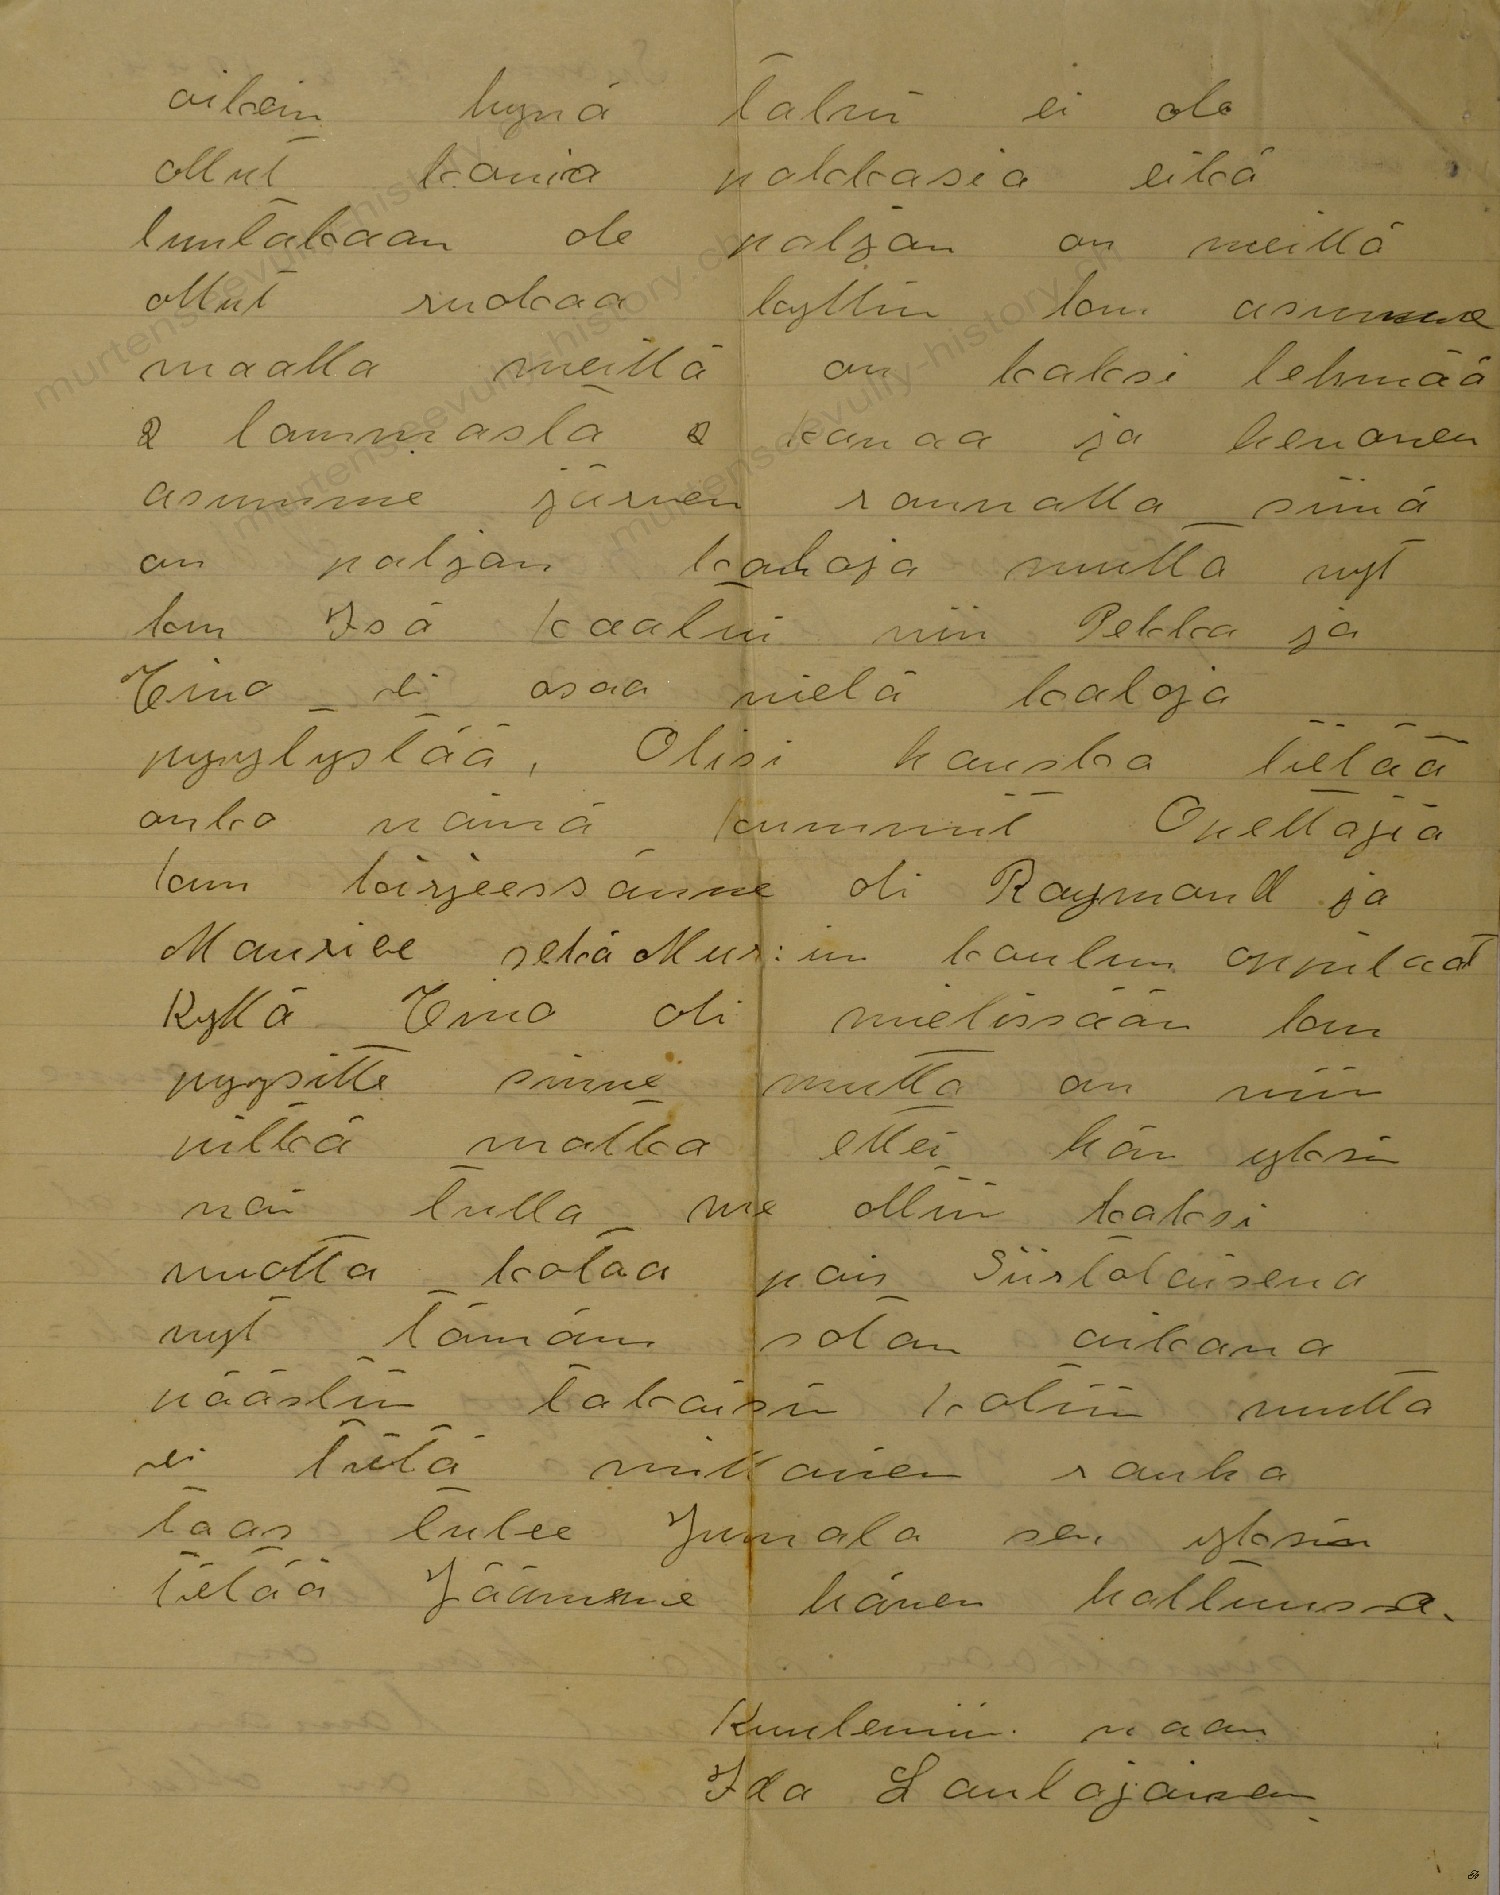 oikein hyvä talvi ei ole
ollut kovia pakkasia eikä
luntakaan ole paljon on meillä
ollut ruokaa kyllin kun asumme
maalla meillä on kaksi lehmää
2 lammasta 2 kanaa ja hevonen
asumme järven rannalla siinä
on paljon kaloja mutta nyt
kun Isä kaatui niin Pekka ja
Eino ei osaa vielä kaloja
pyydystää, Olisi hauska tietää
onko nämä kummit Opettajia
kun kirjeessänne oli Raymond ja
Maurice sekä Mur:in koulun oppilaat
Kyllä Eino oli mielissään kun
pyysitte sinne mutta on niin
pitkä matka ettei hän yksin
voi tulla me oltiin kaksi
vuotta kotoa pois Siirtolaisena
nyt tämän sotan aikana
päästiin takaisin kotiin mutta
ei tietä millainen rauha
taas tulee Jumala sen yksin
tietää Jäämme hänen haltuunsa.
Kuulemiin. vaan
Ida Laulajainen